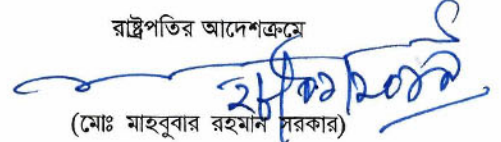 রাষ্ট্রপতির আদেশক্রমে
(মোঃ মাহবুবার রহমান সরকার)